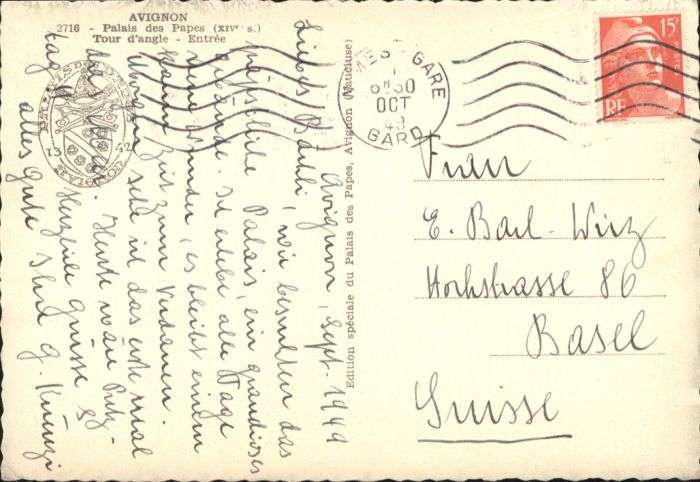 AVIGNON
2716 - Palais des Papes (XIVᵉ s.)
Tour d'angle - Entrée
Avignon, Sept. 1949
Liebes Bethli, wir besuchten das
päpstliche Palais, ein grandioses
Ich erlebe alle Tage
neue Wunder, es bleibt einem
kaum Zeit zum Verdauen.
Morgen sehe ich das erste mal
das Meer. Heute wäre Putz-
tag. Herzliche Grüsse &
alles Gute Ihre G. Künzi
1342
AVIGNON
Edition spéciale du Palais des Papes, Avignon (Vaucluse)
GARE
OCT
GARD
15F
RF
Frau
E. Barl-Wirz
Hochstrasse 86
Basel
Suisse